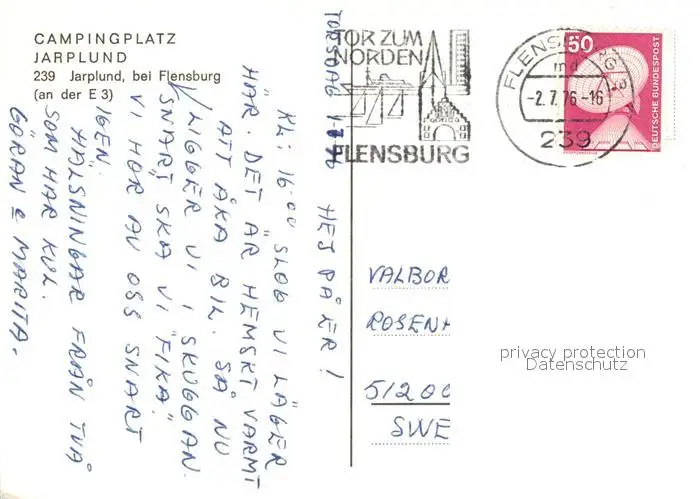 CAMPINGPLATZ
JARPLUND
239 Jarplund, bei Flensburg
(an der E 3)
TORSDAG 1-7-76 HEJ PÅ ER!
KL: 16.00 SLOG VI LÄGER
HÄR. DET ÄR HEMSKT VARMT
ATT ÅKA BIL. SÅ NU
LIGGER VI I SKUGGAN.
SNART SKA VI "FIKA".
VI HÖR AV OSS SNART
IGEN.
HÄLSNINGAR FRÅN TVÅ
SOM HAR KUL.
GÖRAN & MARITA.
TOR ZUM
NORDEN
FLENSBURG
FLENSBURG 1
md
-2.7.76-16
239
50
DEUTSCHE BUNDESPOST
VALBOR
ROSENH
51200
SWE
privacy protection
Datenschutz